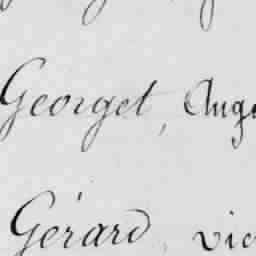 Georget, Auge
Gérard, vic